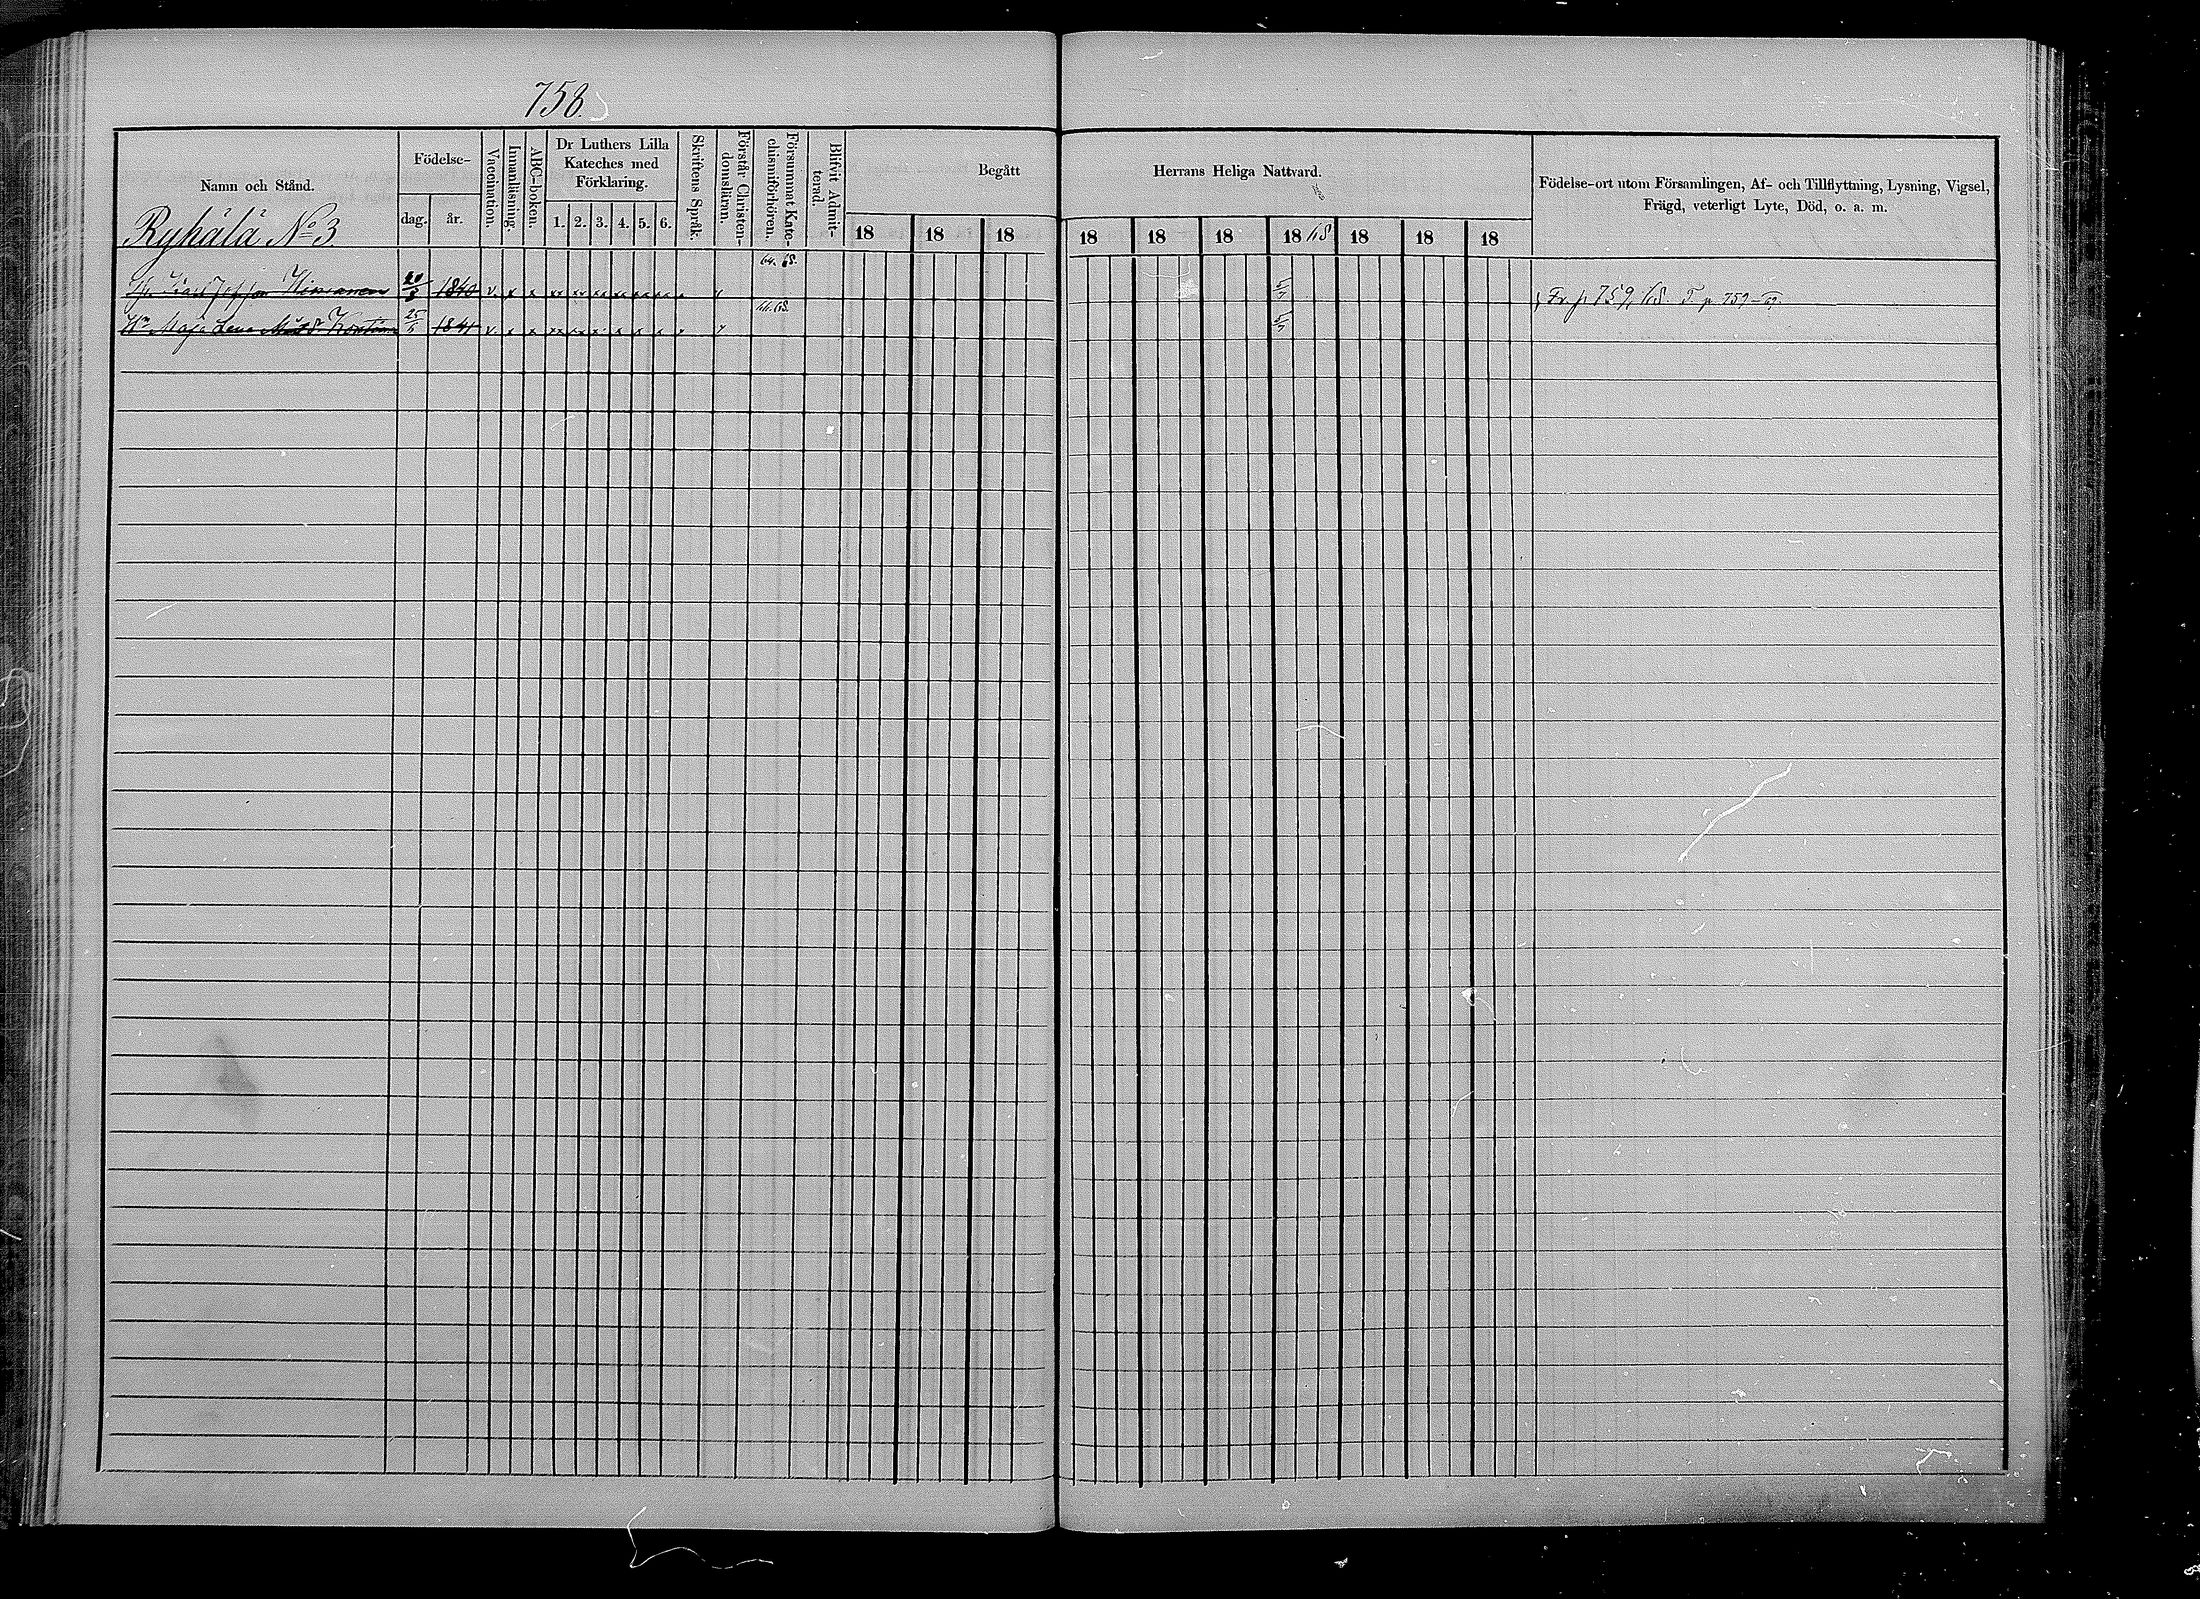 758.
Namn och Stånd.
Födelse-
dag.
år.
Vaccination.
Innanläsning.
ABC-boken.
Dr Luthers Lilla
Kateches med
Förklaring.
1. 2. 3. 4. 5. 6.
Skriftens Språk.
Förstår Christen-
domsläran.
Försummat Kate-
chismiförhören.
Blifvit Admit-
terad.
Begått
18 18 18
Herrans Heliga Nattvard.
18 18 18 18 68 18 18 18
Födelse-ort utom Församlingen, Af- och Tillflyttning, Lysning, Vigsel,
Frägd, veterligt Lyte, Död, o. a. m.
Ryhälä No 3
64. 68.
1840 v. x x xx xx xx xx xx xx 5/7 Fr. p. 759, 68. T. p. 759
Maja Lena 25 1841 v. x x 5/7